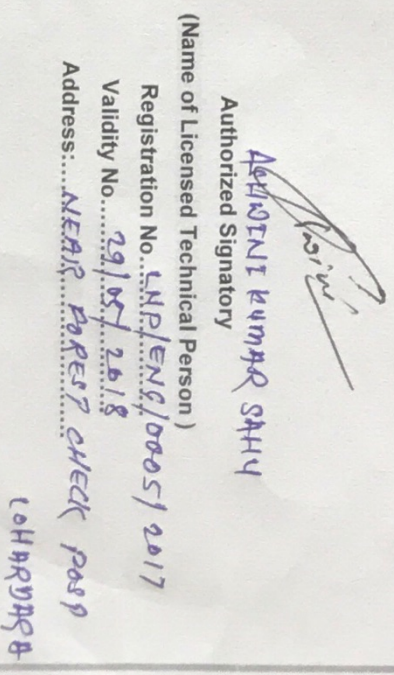 ASHWINI KUMAR SAHU
Authorized Signatory
(Name of Licensed Technical Person)
Registration No....LNP/ENG/0005/2017
Validity No....29/05/2018
Address:....NEAR FOREST CHECK POST
LOHARDAGA